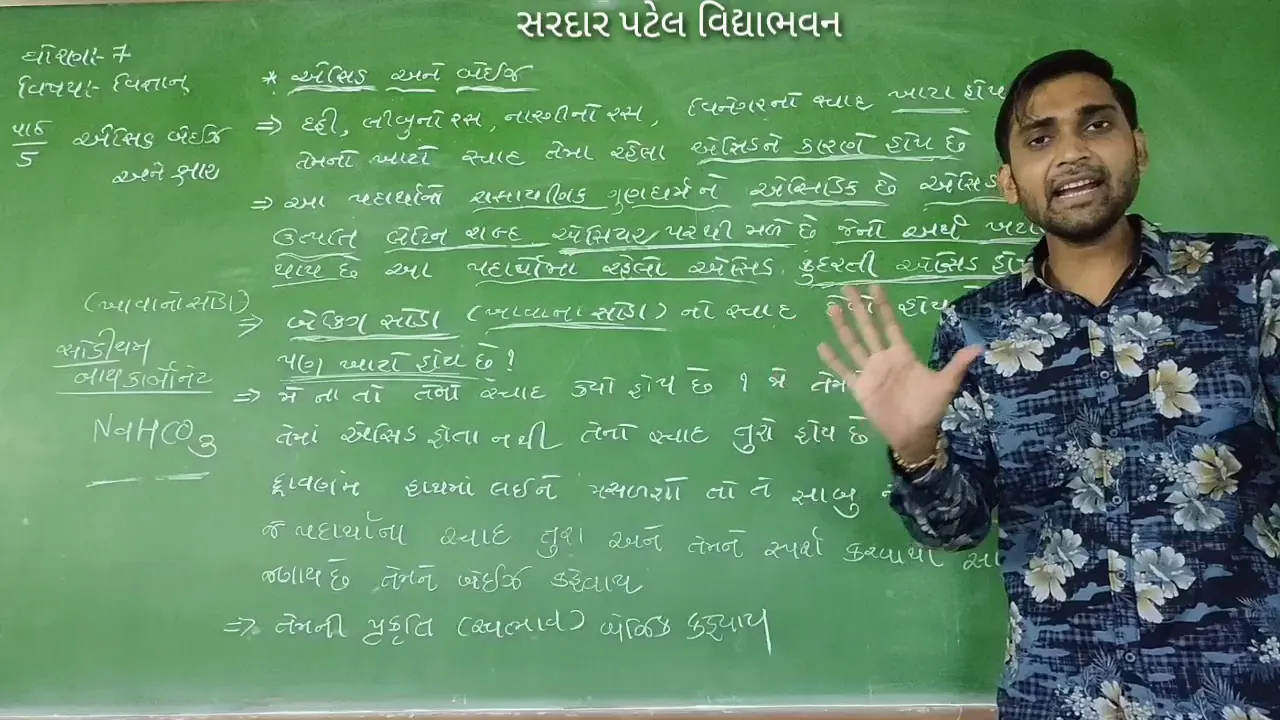 સરદાર પટેલ વિદ્યાભવન
ધોરણ:- 7
વિષય:- વિજ્ઞાન
પાઠ 5 એસિડ બેઈઝ
અને ક્ષાર
* એસિડ અને બેઈઝ
⇒ દહીં, લીંબુનો રસ, નારંગીનો રસ, વિનેગરનો સ્વાદ ખાટો હોય
તેમનો ખાટો સ્વાદ તેમા રહેલા એસિડને કારણે હોય છે
⇒ આ પદાર્થોનો રાસાયણિક ગુણધર્મ ને એસિડિક છે એસિડ
ઉત્પત્તિ લેટિન શબ્દ એસિયર પરથી મળે છે જેનો અર્થ ખાટ
થાય છે આ પદાર્થોમા રહેલો એસિડ કુદરતી એસિડ
⇒ બેકિંગ સોડા (ખાવાના સોડા) નો સ્વાદ હોય
પણ ખાટો હોય છે ?
⇒ જો ના તો તેનો સ્વાદ કયો હોય છે ?
તેમાં એસિડ હોતા નથી તેનો સ્વાદ તુરો હોય છે
દ્રાવણને હાથમાં લઈને મસળશો તો તે સાબુ
જે પદાર્થોના સ્વાદ તુરા અને તેમને સ્પર્શ કરવાથી
જણાય છે તેમને બેઈઝ કહેવાય
⇒ તેમની પ્રકૃતિ (સ્વભાવ) બેઝિક કહેવાય
(ખાવાનો સોડા)
સોડીયમ
બાયકાર્બોનેટ
NaHCO3